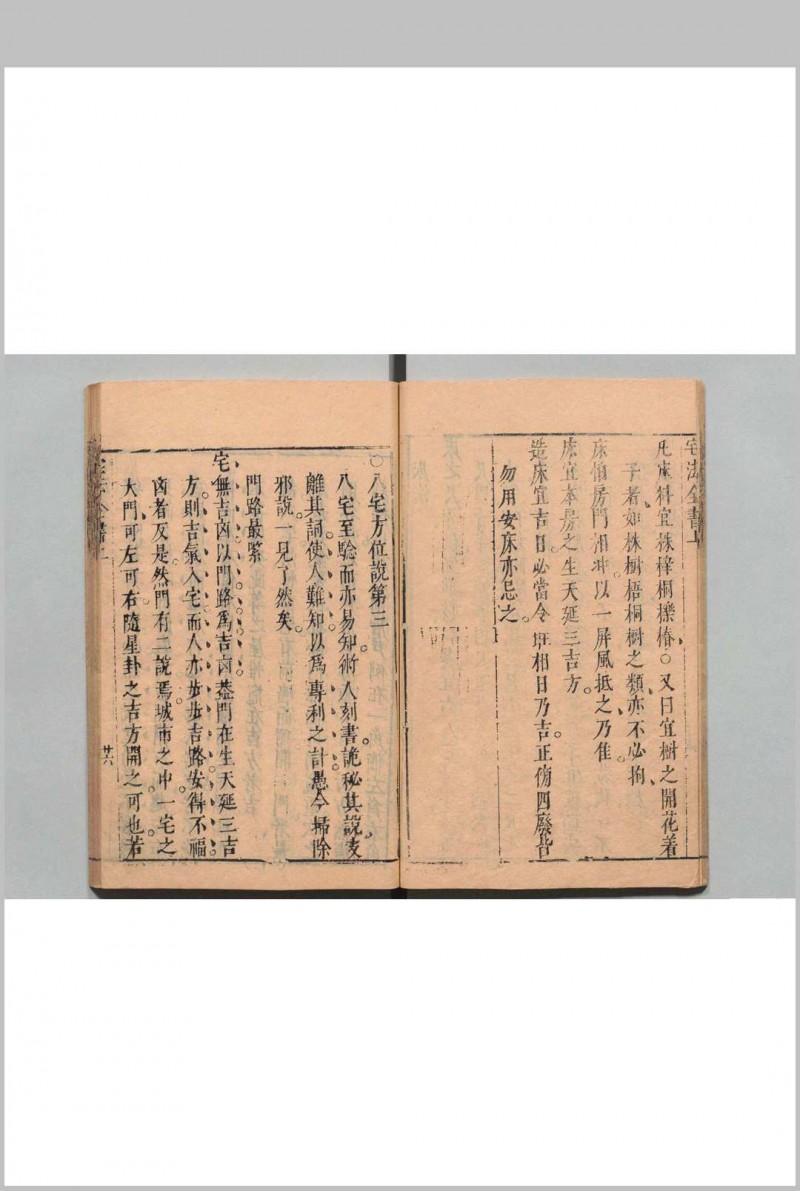 宅法全書上
凡床料宜株樟桐櫟椿○又曰宜樹之開花着
子者如株樹梧桐樹之類亦不必拘
床怕房門相冲以一屏風抵之乃佳
床宜本房之生天延三吉方
造床宜吉日必當令旺相日乃吉正傍四廢皆
勿用安床亦忌之
○八宅方位說第三
八宅至驗而亦易知術人刻書詭秘其說支
離其詞使人難知以爲專利之計愚今掃除
邪說一見了然矣
門路最緊
宅無吉凶以門路爲吉凶葢門在生天延三吉
方則吉氣入宅而人亦步步吉路安得不福
凶者反是然門有二說焉城市之中一宅之
大門可左可右隨星卦之吉方開之可也若
廿六